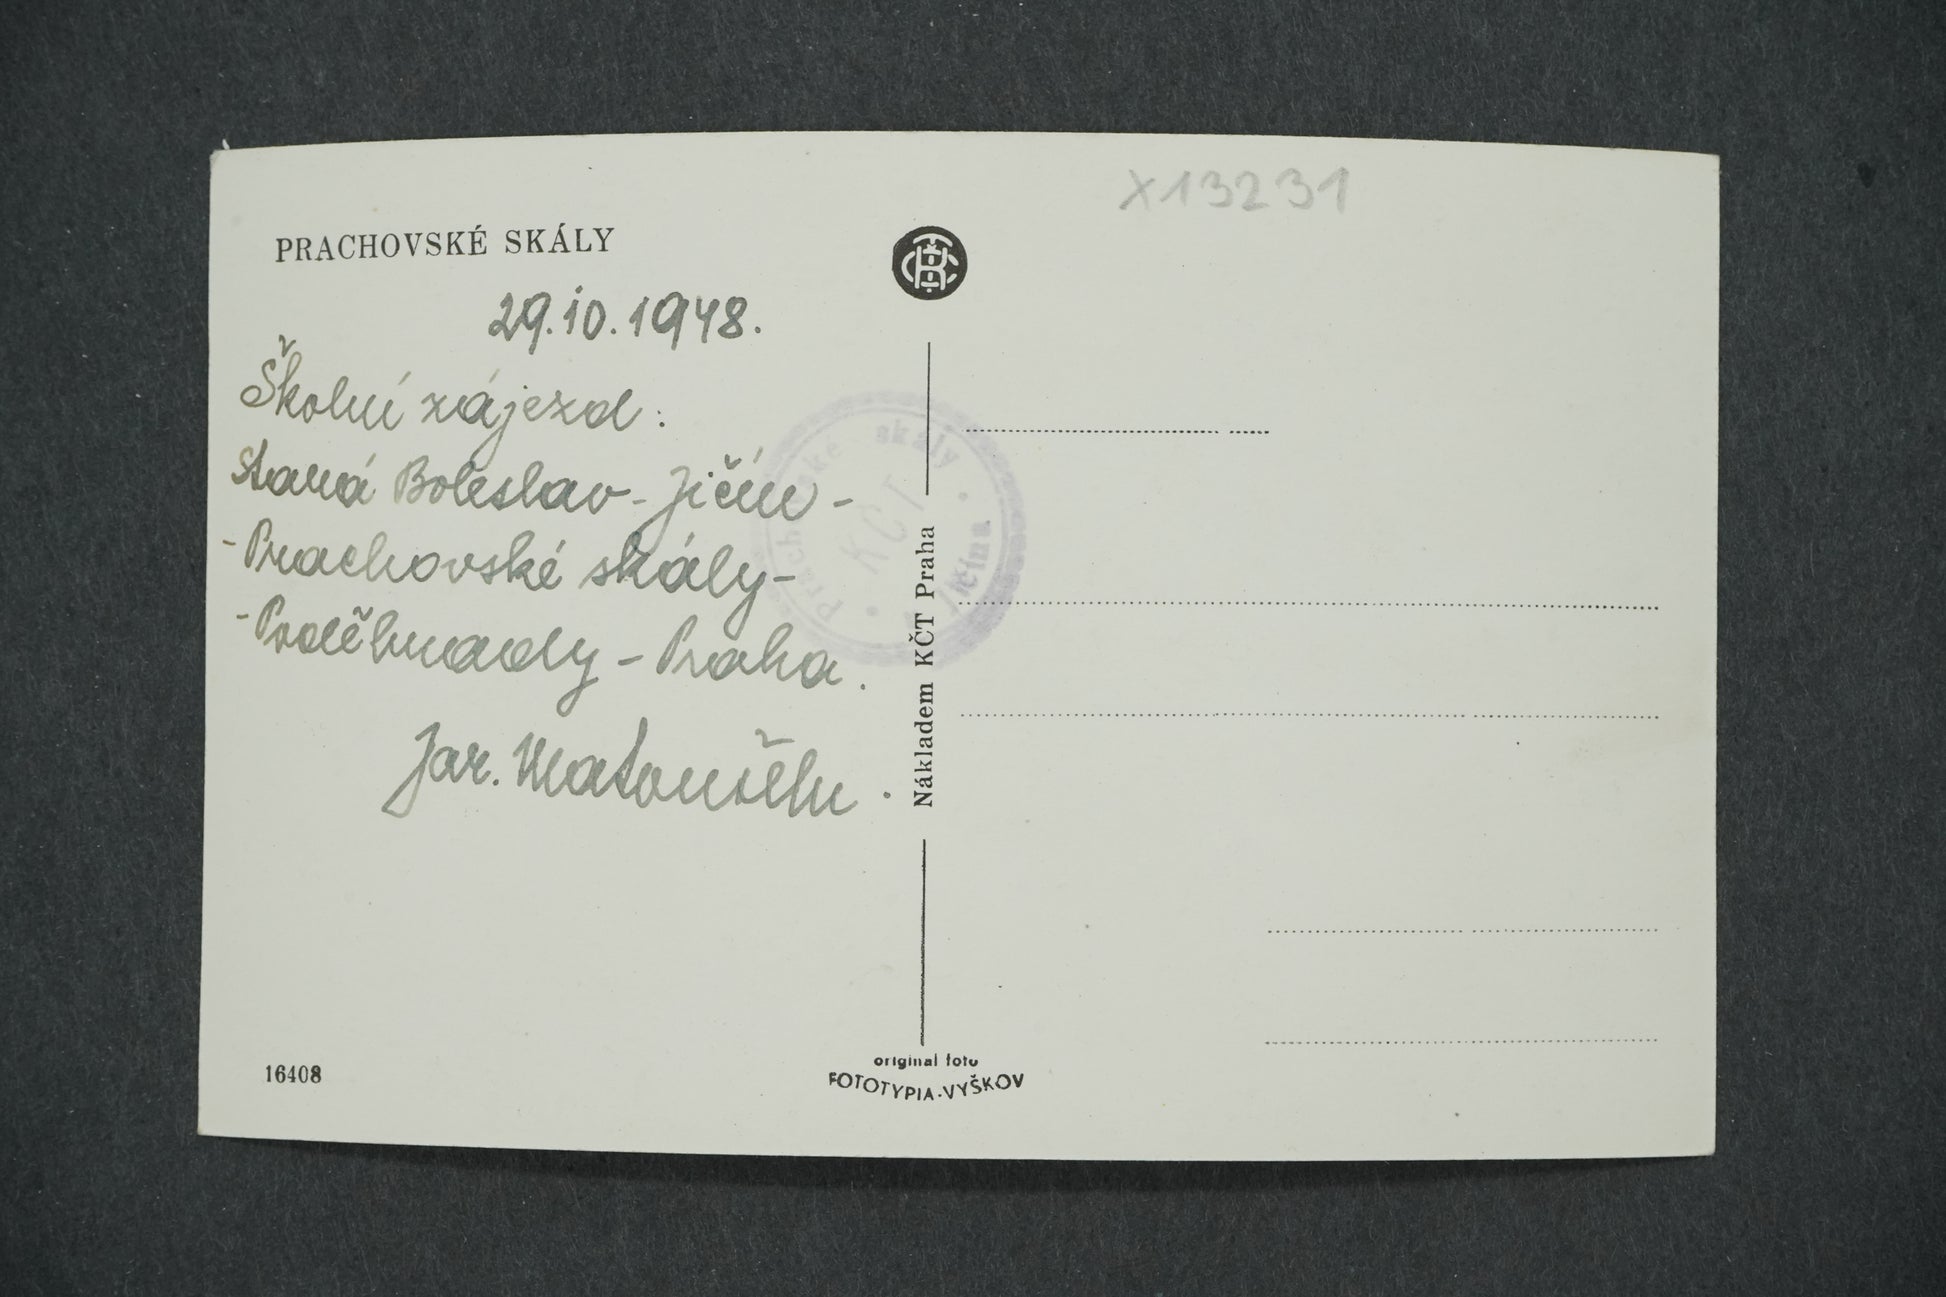 X13231
PRACHOVSKÉ SKÁLY
29.10.1948.
Školní zájezd:
Stará Boleslav - Jičín -
- Prachovské skály -
- Poděbrady - Praha.
Jar. Matoušek.
Prachovské skály
KČT
Nákladem KČT Praha
16408
original foto
FOTOTYPIA-VYŠKOV